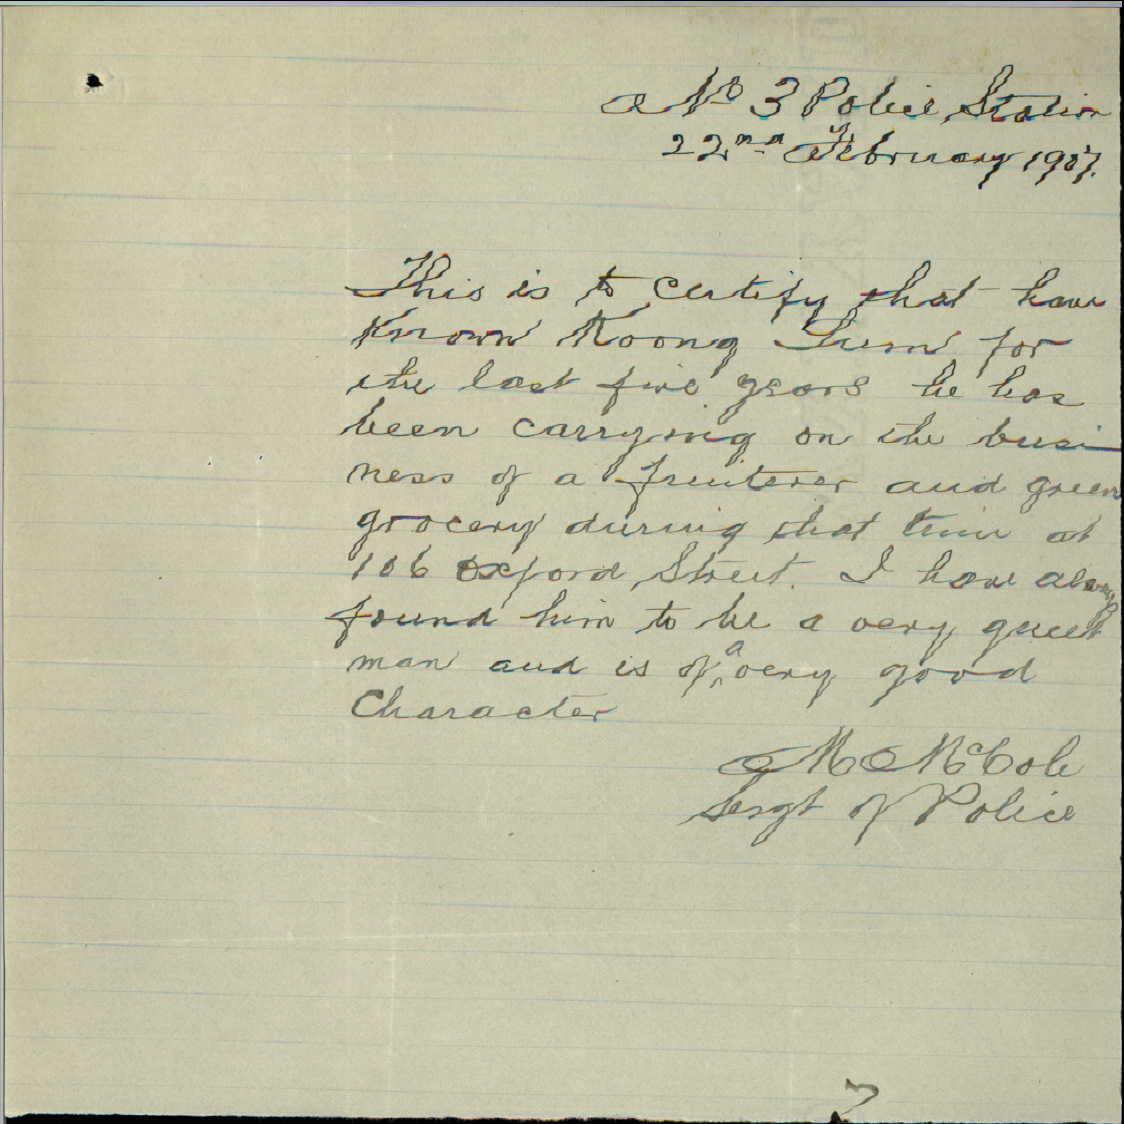 No 3 Police Station
22nd February 1907.
This is to certify that have
Known Koong Lum for
the last five years he has
been carrying on the busi
ness of a fruiterer and green
grocery during that time at
106 Oxford Street. I have always
found him to be a very quiet
man and is of a very good
Character
M McCole
Sergt of Police